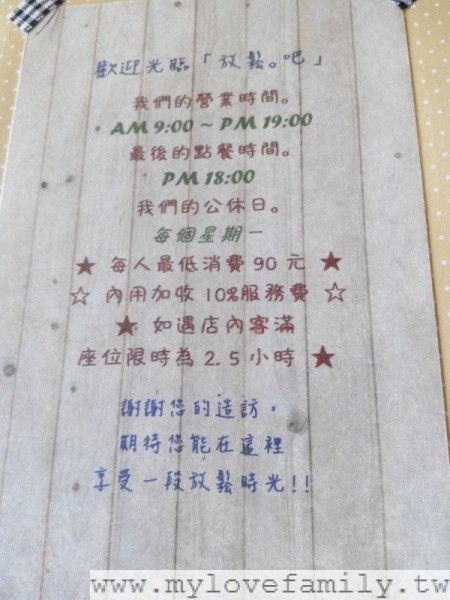 歡迎光臨「放鬆。吧」
我們的營業時間。
AM 9:00 ~ PM 19:00
最後的點餐時間。
PM 18:00
我們的公休日。
每個星期一
★ 每人最低消費 90 元 ★
☆ 內用加收 10%服務費 ☆
★ 如遇店內客滿
座位限時為 2.5 小時 ★
謝謝您的造訪，
期待您能在這裡
享受一段放鬆時光!!
www.mylovefamily.tw